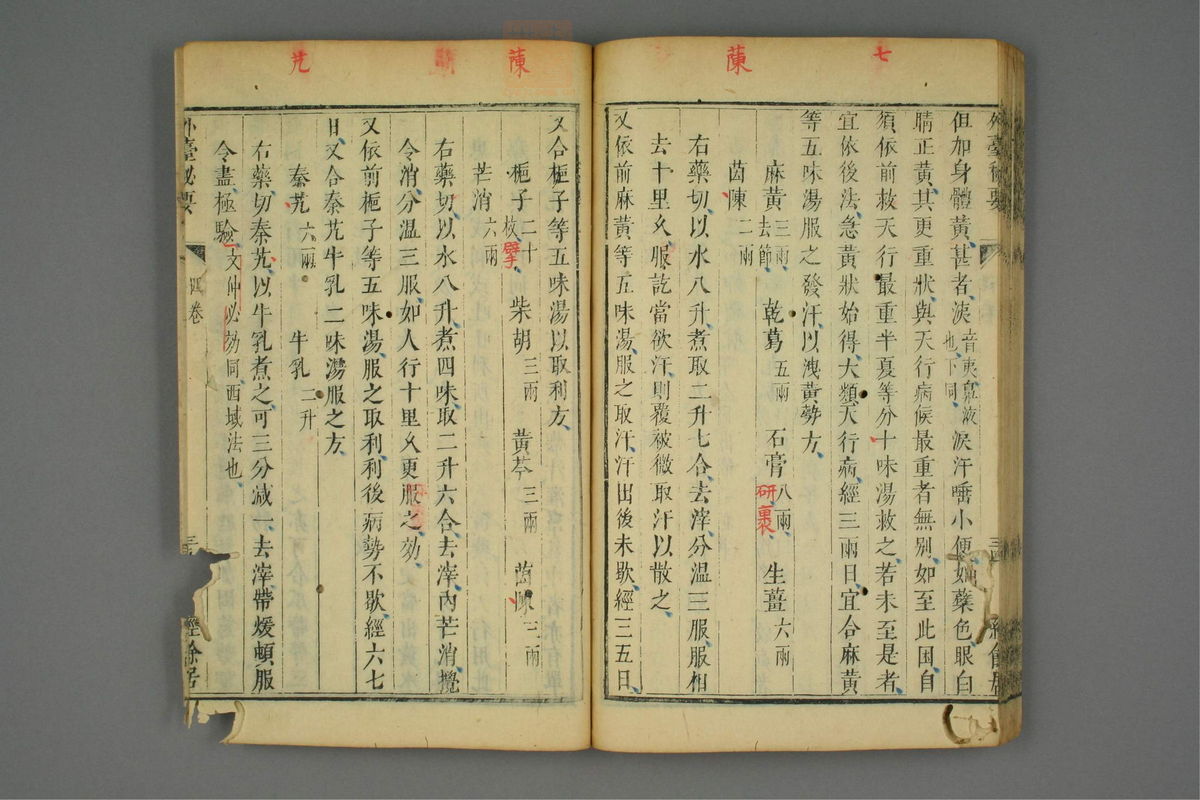 七
蔯
但加身體黃甚者洟音夷鼻液也下同淚汗唾小便如蘗色眼白
睛正黃其更重狀與天行病候最重者無别如至此困自
須依前救天行最重半夏等分十味湯救之若未至是者
宜依後法急黃狀始得大類天行病經三兩日宜合麻黃
等五味湯服之發汗以洩黃勢方
麻黃三兩去節 乾葛五兩 石膏八兩研裹 生薑六兩
茵陳二兩
右藥切以水八升煮取二升七合去滓分温三服服相
去十里乆服訖當欲汗則覆被微取汗以散之
又依前麻黃等五味湯服之取汗汗出後未歇經三五日
蔯
艽
又合梔子等五味湯以取利方
梔子二十枚擘 柴胡三兩 黃芩三兩 茵陳三兩
芒消六兩
右藥切以水八升煮四味取二升六合去滓內芒消攪
令消分温三服如人行十里乆更服之効
又依前梔子等五味湯服之取利利後病勢不歇經六七
日又合秦艽牛乳二味湯服之方
秦艽六兩 牛乳二升
右藥切秦艽以牛乳煮之可三分減一去滓帶煖頓服
令盡極驗文仲必効同西域法也
外臺秘要 四卷 經餘居